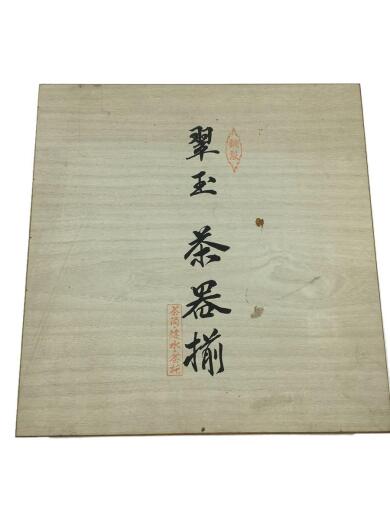 銅製
翠玉 茶器揃
茶筒建水茶托